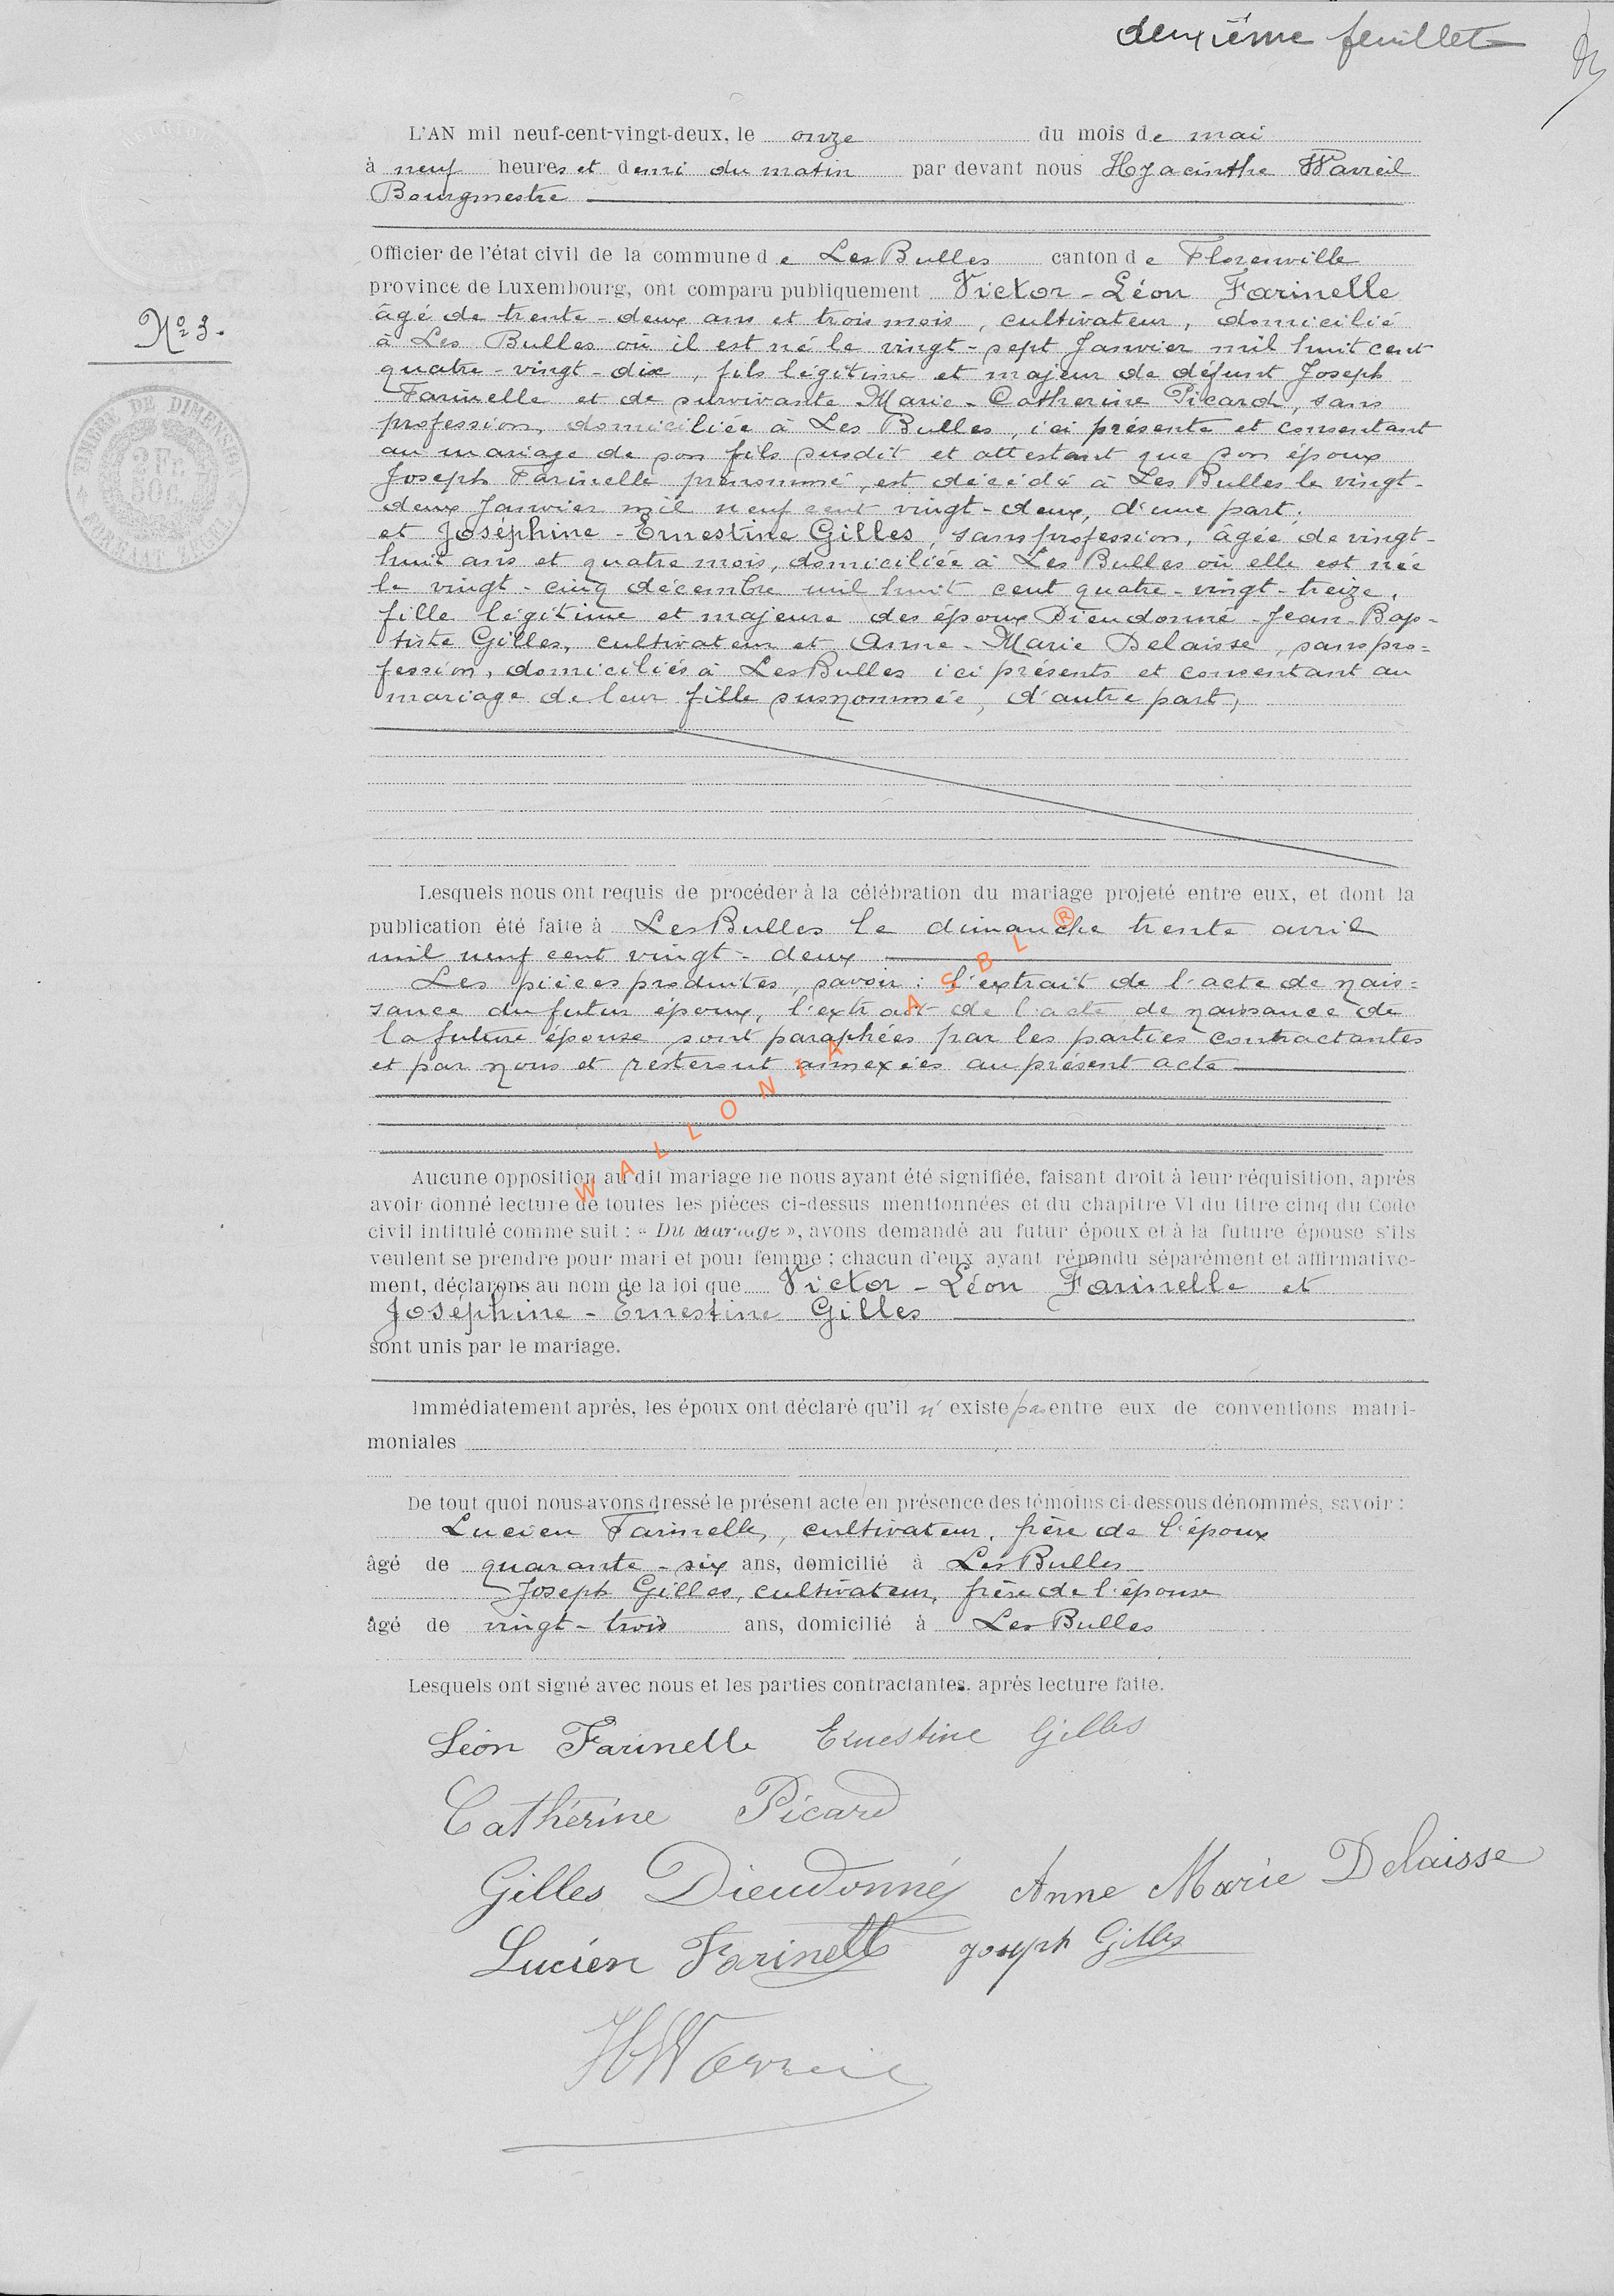 deuxième feuillet
L'AN mil neuf-cent-vingt-deux, le onze du mois de mai
à neuf heures et demi du matin par devant nous Hyacinthe Wavreil
Bourgmestre
Officier de l'état civil de la commune de Les Bulles canton de Florenville
province de Luxembourg, ont comparu publiquement Victor-Léon Farinelle
âgé de trente-deux ans et trois mois, cultivateur, domicilié
N° 3.
à Les Bulles où il est né le vingt-sept Janvier mil huit cent
quatre-vingt-dix, fils légitime et majeur de défunt Joseph
Farinelle et de survivante Marie-Catherine Picard, sans
profession, domiciliée à Les Bulles, ici présente et consentant
au mariage de son fils susdit et attestant que son époux
Joseph Farinelle prénommé, est décédé à Les Bulles le vingt-
deux Janvier mil neuf cent vingt-deux, d'une part;
et Joséphine-Ernestine Gilles, sans profession, âgée de vingt-
huit ans et quatre mois, domiciliée à Les Bulles où elle est née
le vingt-cinq décembre mil huit cent quatre-vingt-treize,
fille légitime et majeure des époux Dieudonné-Jean-Bap-
tiste Gilles, cultivateur et Anne-Marie Delaisse, sans pro=
fession, domiciliés à Les Bulles ici présents et consentant au
mariage de leur fille susnommée, d'autre part,
TIMBRE DE DIMENSION
2 Fr.
50 C.
Lesquels nous ont requis de procéder à la célébration du mariage projeté entre eux, et dont la
publication été faite à Les Bulles le dimanche trente avril
mil neuf cent vingt-deux
Les pièces produites, savoir: l'extrait de l'acte de nais=
sance du futur époux, l'extrait de l'acte de naissance de
la future épouse sont paraphées par les parties contractantes
et par nous et resteront annexées au présent acte
WALLONIA ASBL ®
Aucune opposition au dit mariage ne nous ayant été signifiée, faisant droit à leur réquisition, après
avoir donné lecture de toutes les pièces ci-dessus mentionnées et du chapitre VI du titre cinq du Code
civil intitulé comme suit : « Du Mariage », avons demandé au futur époux et à la future épouse s'ils
veulent se prendre pour mari et pour femme ; chacun d'eux ayant répondu séparément et affirmative-
ment, déclarons au nom de la loi que Victor-Léon Farinelle et
Joséphine-Ernestine Gilles
sont unis par le mariage.
Immédiatement après, les époux ont déclaré qu'il n'existe pas entre eux de conventions matri-
moniales
De tout quoi nous avons dressé le présent acte en présence des témoins ci-dessous dénommés, savoir :
Lucien Farinelle, cultivateur, frère de l'époux
âgé de quarante-six ans, domicilié à Les Bulles
Joseph Gilles, cultivateur, frère de l'épouse
âgé de vingt-trois ans, domicilié à Les Bulles
Lesquels ont signé avec nous et les parties contractantes, après lecture faite.
Léon Farinelle Ernestine Gilles
Cathérine Picard
Gilles Dieudonné Anne Marie Delaisse
Lucien Farinelle Joseph Gilles
H Wavreil